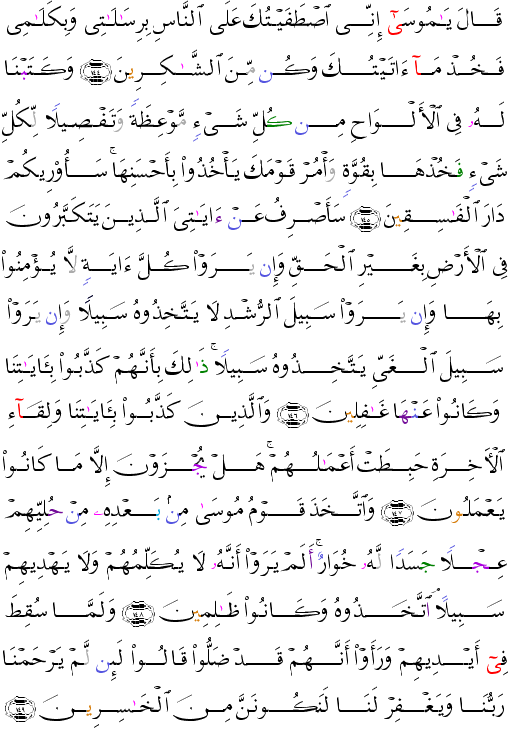 قَالَ يَـٰمُوسَىٰٓ إِنِّى ٱصْطَفَيْتُكَ عَلَى ٱلنَّاسِ بِرِسَـٰلَـٰتِى وَبِكَلَـٰمِى
فَخُذْ مَآ ءَاتَيْتُكَ وَكُن مِّنَ ٱلشَّـٰكِرِينَ ﴿١٤٤﴾ وَكَتَبْنَا
لَهُۥ فِى ٱلْأَلْوَاحِ مِن كُلِّ شَىْءٍ مَّوْعِظَةً وَتَفْصِيلًا لِّكُلِّ
شَىْءٍ فَخُذْهَا بِقُوَّةٍ وَأْمُرْ قَوْمَكَ يَأْخُذُوا۟ بِأَحْسَنِهَا ۚ سَأُو۟رِيكُمْ
دَارَ ٱلْفَـٰسِقِينَ ﴿١٤٥﴾ سَأَصْرِفُ عَنْ ءَايَـٰتِىَ ٱلَّذِينَ يَتَكَبَّرُونَ
فِى ٱلْأَرْضِ بِغَيْرِ ٱلْحَقِّ وَإِن يَرَوْا۟ كُلَّ ءَايَةٍ لَّا يُؤْمِنُوا۟
بِهَا وَإِن يَرَوْا۟ سَبِيلَ ٱلرُّشْدِ لَا يَتَّخِذُوهُ سَبِيلًا وَإِن يَرَوْا۟
سَبِيلَ ٱلْغَىِّ يَتَّخِذُوهُ سَبِيلًا ۚ ذَٰلِكَ بِأَنَّهُمْ كَذَّبُوا۟ بِـَٔايَـٰتِنَا
وَكَانُوا۟ عَنْهَا غَـٰفِلِينَ ﴿١٤٦﴾ وَٱلَّذِينَ كَذَّبُوا۟ بِـَٔايَـٰتِنَا وَلِقَآءِ
ٱلْـَٔاخِرَةِ حَبِطَتْ أَعْمَـٰلُهُمْ ۚ هَلْ يُجْزَوْنَ إِلَّا مَا كَانُوا۟
يَعْمَلُونَ ﴿١٤٧﴾ وَٱتَّخَذَ قَوْمُ مُوسَىٰ مِنۢ بَعْدِهِۦ مِنْ حُلِيِّهِمْ
عِجْلًا جَسَدًا لَّهُۥ خُوَارٌ ۚ أَلَمْ يَرَوْا۟ أَنَّهُۥ لَا يُكَلِّمُهُمْ وَلَا يَهْدِيهِمْ
سَبِيلًا ۘ ٱتَّخَذُوهُ وَكَانُوا۟ ظَـٰلِمِينَ ﴿١٤٨﴾ وَلَمَّا سُقِطَ
فِىٓ أَيْدِيهِمْ وَرَأَوْا۟ أَنَّهُمْ قَدْ ضَلُّوا۟ قَالُوا۟ لَئِن لَّمْ يَرْحَمْنَا
رَبُّنَا وَيَغْفِرْ لَنَا لَنَكُونَنَّ مِنَ ٱلْخَـٰسِرِينَ ﴿١٤٩﴾